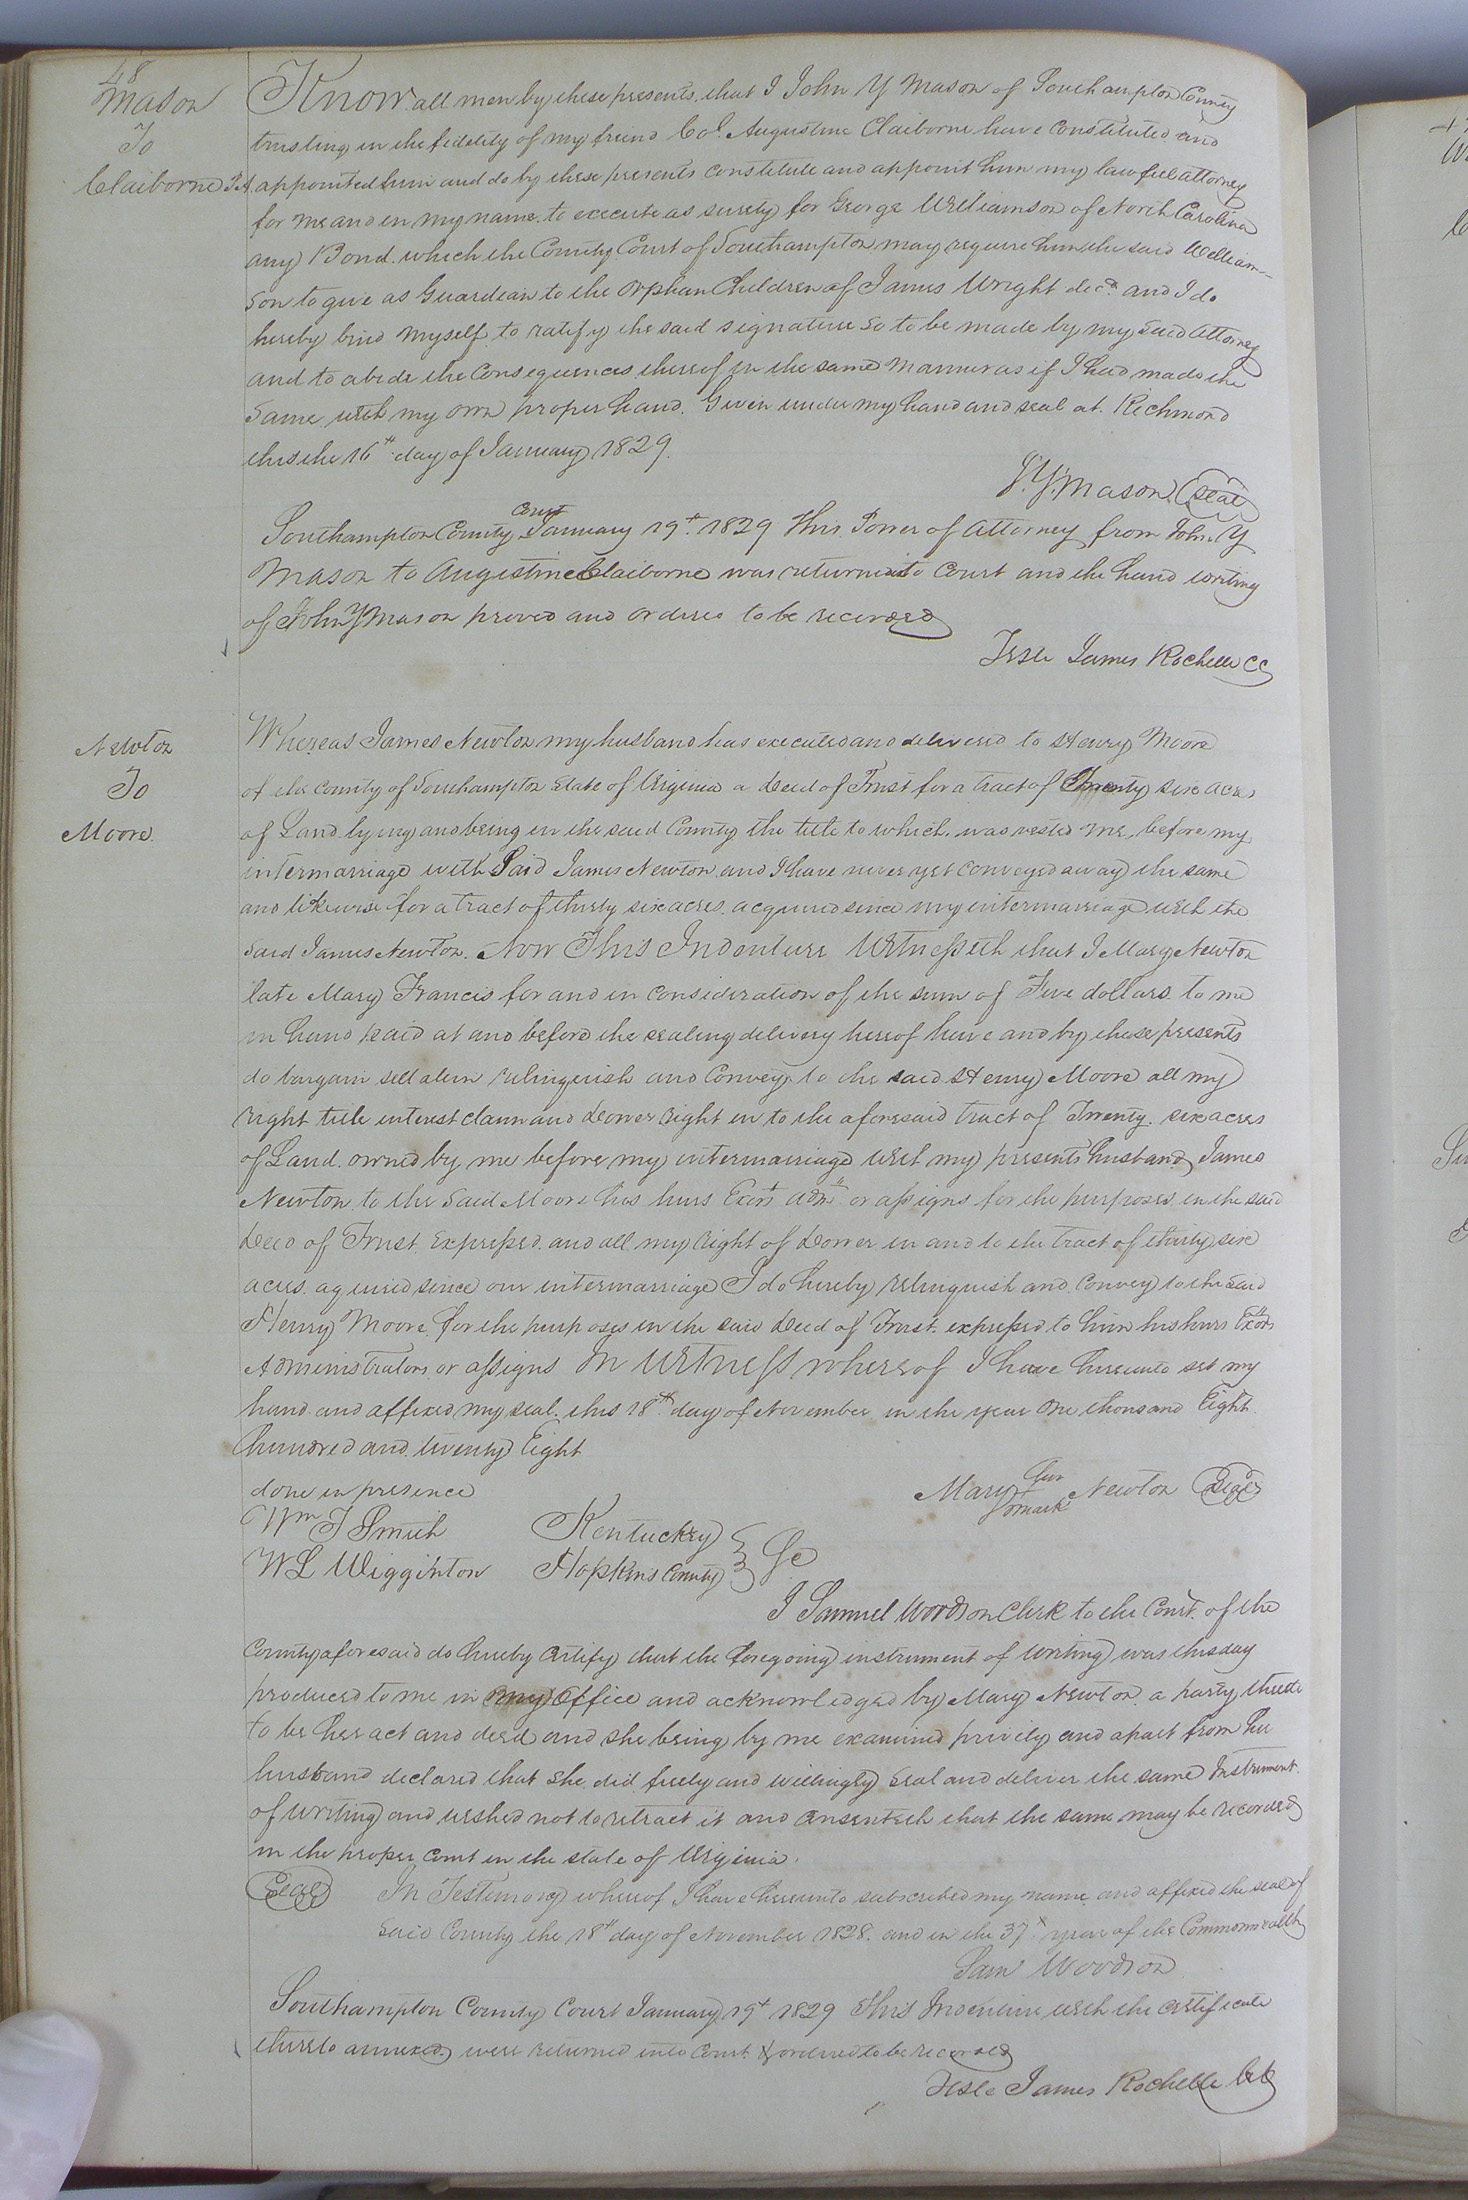 48
Mason
To
Claiborne P.A
Know all men by these presents. that I John Y Mason of Southampton County
trusting in the fidelity of my friend Col. Augustine Claiborne have constituted and
appointed him and do by these presents constitute and appoint him my lawful attorney
for me and in my name. to execute as surety for George Williamson of North Carolina
any Bond. which the County Court of Southampton may require him the said William-
son to give as Guardian to the orphan Children of James Wright decd. and I do
hereby bind myself to ratify the said signature so to be made by my said attorney
and to abide the Consequences thereof in the same manner as if I had made the
same with my own proper hand. Given under my hand and seal at Richmond
this the 16th day of January 1829.
J. Y. Mason (seal)
Southampton County Court January 19th. 1829 This Power of attorney from John Y
Mason to Augustine Claiborne was returned into Court and the hand writing
of John Y Mason proved and ordered to be recorded
Teste James Rochelle CC
Newton
To
Moore
Whereas James Newton my husband has executed and delivered to Henry Moore
of the County of Southampton State of Virginia a deed of Trust for a tract of Twenty six acres
of Land lying and being in the said County the title to which was vested me, before my
intermarriage with Said James Newton and I have never yet conveyed away the same
and likewise for a tract of thirty six acres acquired since my intermarriage with the
said James Newton. Now This Indenture Witnesseth that I Mary Newton
late Mary Francis for and in consideration of the sum of Five dollars to me
in hand paid at and before the sealing delivery hereof have and by these presents
do bargain sell alien relinquish and Convey to the said Henry Moore all my
right title interest claim and dower right in to the aforesaid tract of Twenty. six acres
of Land. owned by me before my intermarriage with my presents husband James
Newton to the Said Moore his hiurs Exors admrs or assigns for the purposes in the said
Deed of Trust Expressed. and all my right of dower in and to the tract of thirty six
acres. aquired since our intermarriage I do hereby relinquish and convey to the said
Henry Moore for the purposes in the said deed of Trust expressed to him his hurs Exors
Administrators or assigns In Witness whereof I have hereunto set my
hand and affixed my seal. this 18th day of November in the year One thousand Eight
hundred and twenty Eight
done in presence
Mary her mark Newton (seal)
Wm T Smith
W L Wigginton
Kentucky
Hopkins County Sc
I Samuel Woodson Clerk to the Court of the
County aforesaid do hereby certify that the foregoing instrument of writing was thisday
produced to me in my office and acknowledged by Mary Newton a party thereto
to be her act and deed and she being by me examined privily and apart from her
husband declared that she did freely and willingly seal and deliver the same Instrument
of writing and wished not to retract it and consenteth that the same may be recorded
in the proper court in the state of Virginia.
(Seal)
In Testimony whereof I have hereunto subscribed my name and affixed the seal of
said County the 18th day of November 1828. and in the 37th year of the Commonwealth
Sam Woodson
Southampton County Court January 19th 1829 This Indenture with the certificate
thereto annexed were returned into Court & ordered to be recorded
Teste James Rochelle Clk